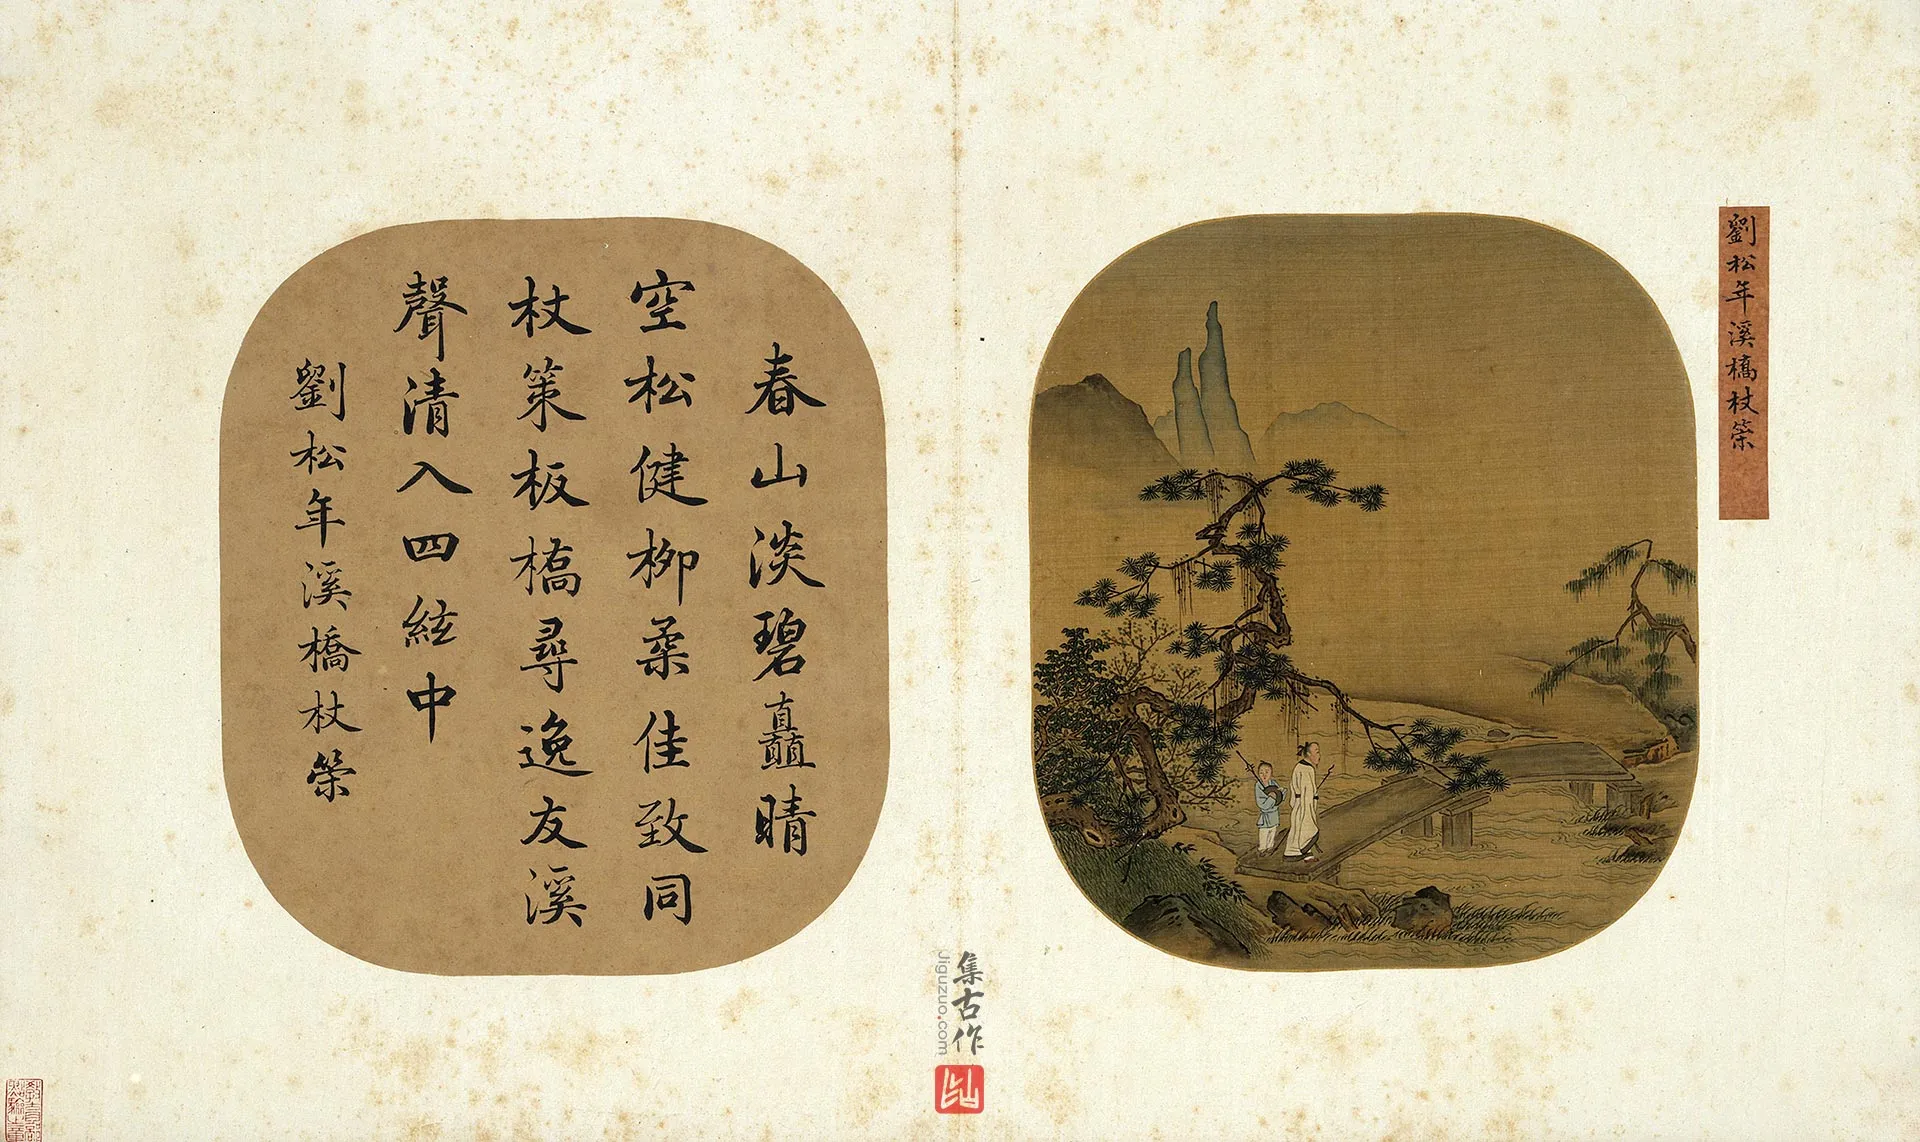 劉松年溪橋杖筞
春山淡碧矗晴
空松健柳柔佳致同
杖策板橋尋逸友溪
聲清入四絃中
劉松年溪橋杖筞
集古作
Jiguzuo.com